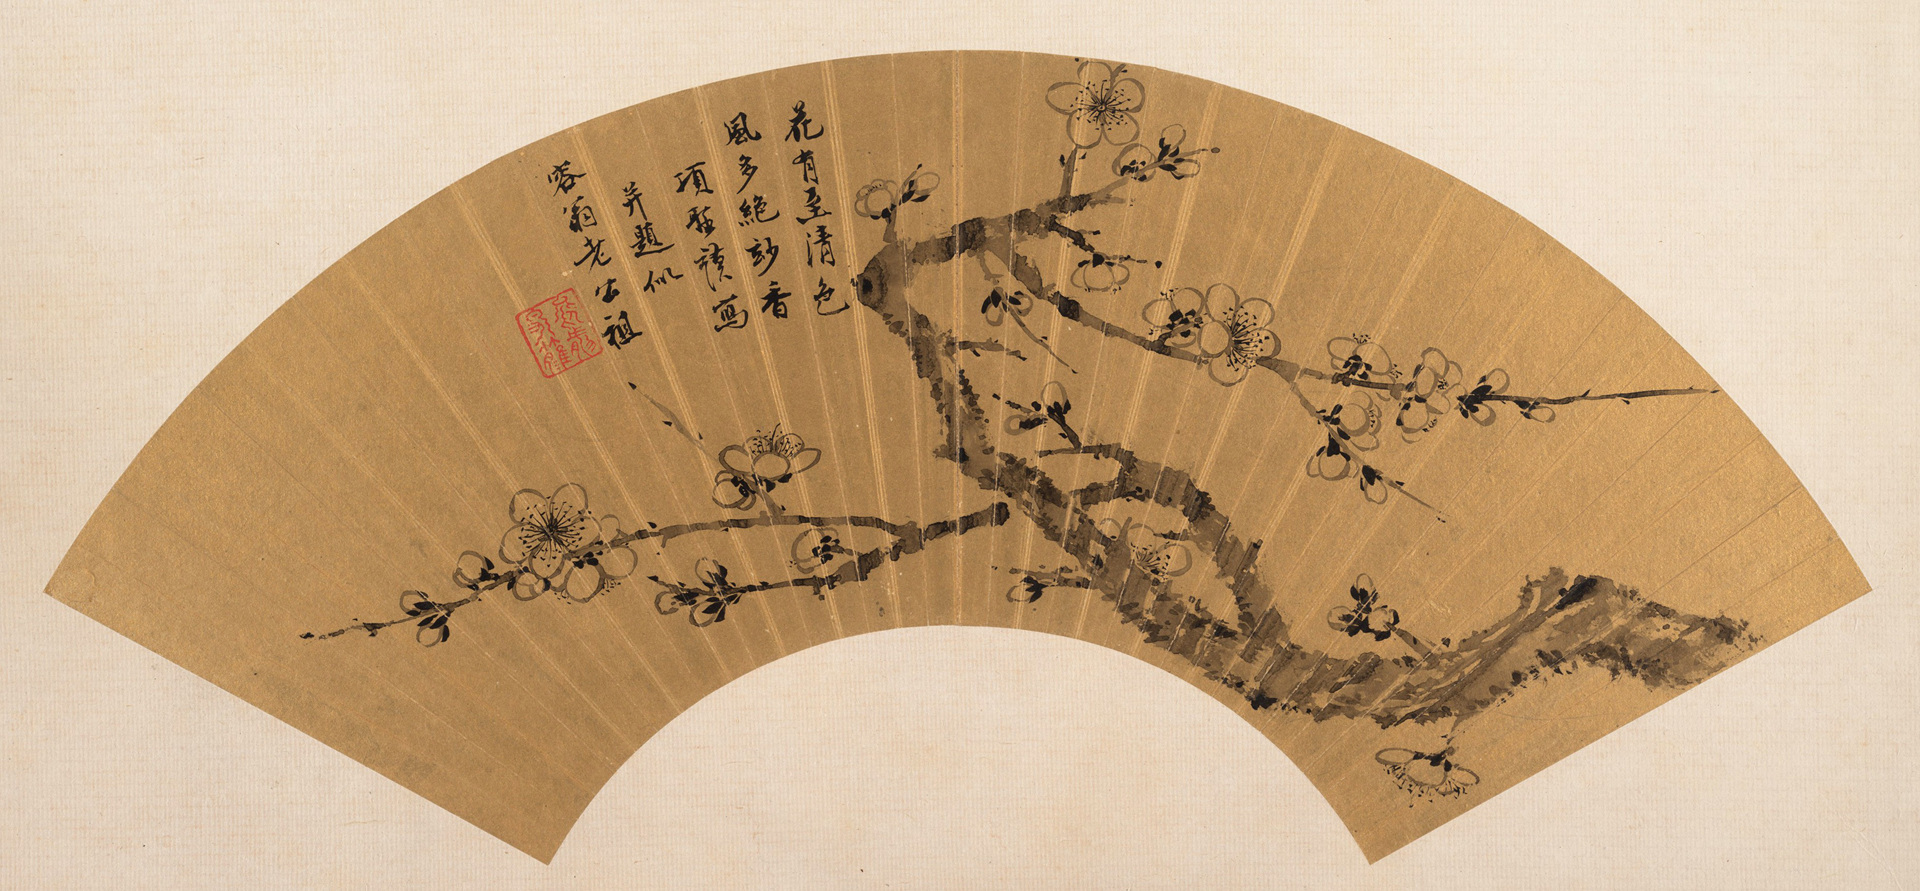 花有至清色
風多絕妙香
項聖謨寫
并題似
蓉翁老宗祖